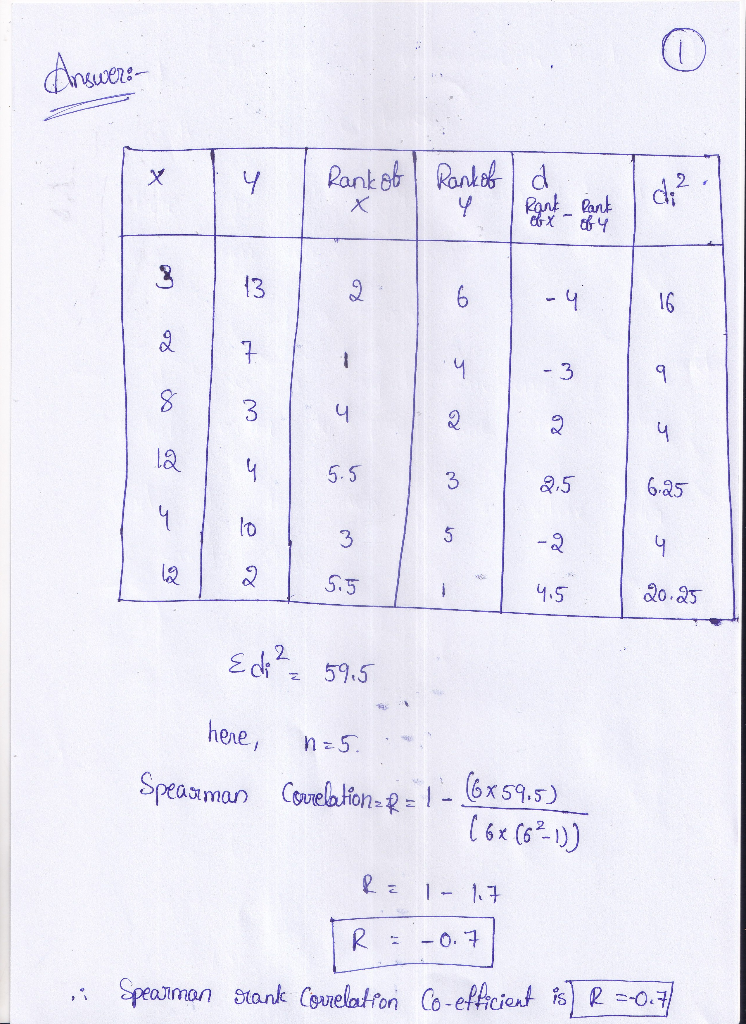 1
Answer:-
X Y Rank of X Rank of Y d Rank of X - Rank of Y di².
3 13 2 6 -4 16
2 7 1 4 -3 9
8 3 4 2 2 4
12 4 5.5 3 2.5 6.25
4 10 3 5 -2 4
12 2 5.5 1 4.5 20.25
Σdi² = 59.5
here, n=5.
Spearman Correlation = R = 1 - (6x59.5) / (6x(6²-1))
R = 1 - 1.7
R = -0.7
∴ Spearman rank Correlation Co-efficient is R =-0.7